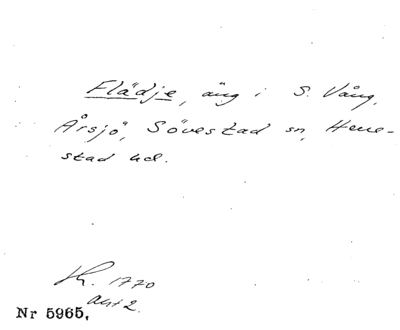 Flädje, äng i S. Vång,
Årsjö, Sövestad sn, Herre-
stad hd.
Sk. 1770
akt 2.
Nr 5965,